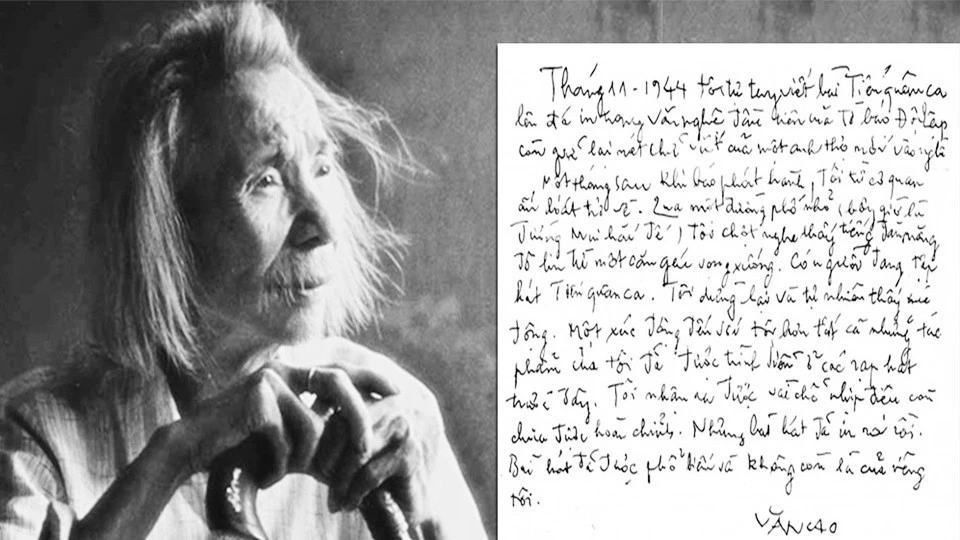 Tháng 11-1944 tôi tự tay viết bài Tiến quân ca
lên đá in trang văn nghệ đầu tiên của tờ báo Độc lập
còn giữ lại nét chữ viết của một anh thợ mới vào nghề
Một tháng sau khi báo phát hành, Tôi từ cơ quan
ấn loát trở về. Qua một đường phố nhỏ (bây giờ là
đường Mai hắc đế) tôi chợt nghe thấy tiếng đàn măng
đô lin từ một căn gác vọng xuống. Có người đang tập
hát Tiến quân ca. Tôi dừng lại và tự nhiên thấy xúc
động. Một xúc động đến với tôi hơn tất cả những tác
phẩm của tôi đã được trình diễn ở các rạp hát
trước đây. Tôi nhận ra được vài chỗ nhịp điệu còn
chưa được hoàn chỉnh. Nhưng bài hát đã in ra rồi.
Bài hát đã được phổ biến và không còn là của riêng
tôi.
VĂN CAO